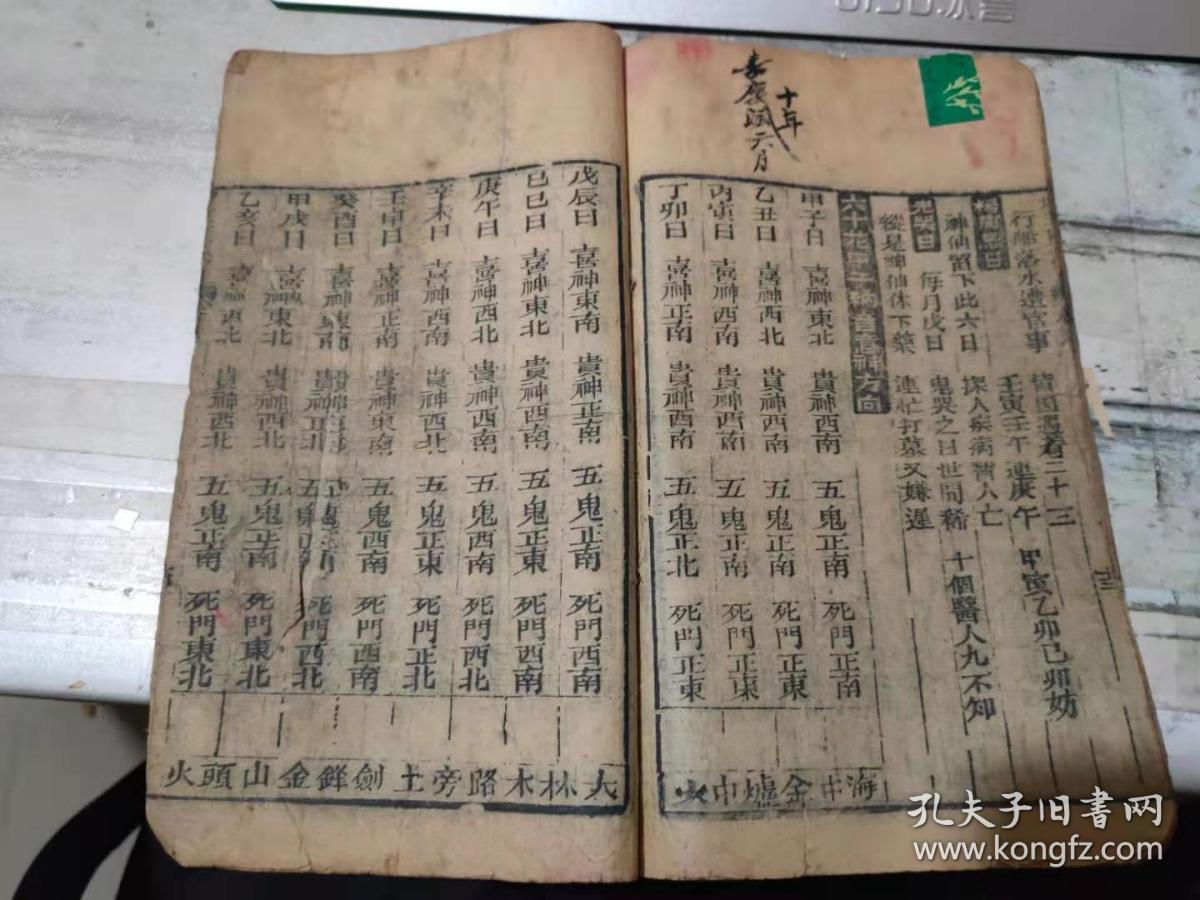 嘉慶閏六月
十年
行船落水遭官事 皆因遇着二十三
神仙留下此六日 壬寅壬午連庚午 甲寅乙卯己卯妨
探人疾病替人亡
鬼哭日 每月戊日 鬼哭之日世間稀 十個醫人九不知
縱是神仙休下藥 連忙打墓又嫌遲
六十花甲子納音喜神方向
甲子日 喜神東北 貴神西南 五鬼正南 死門正南
乙丑日 喜神西北 貴神西南 五鬼正南 死門正東
丙寅日 喜神西南 貴神西南 五鬼正南 死門正東
丁卯日 喜神正南 貴神西南 五鬼正北 死門正東
海中金爐中火
戊辰日 喜神東南 貴神正南 五鬼正南 死門西南
己巳日 喜神東北 貴神西南 五鬼正東 死門西南
庚午日 喜神西北 貴神西南 五鬼西南 死門西北
辛未日 喜神西南 貴神西北 五鬼正東 死門正北
壬申日 喜神正南 貴神東南 五鬼西南 死門西南
癸酉日 喜神東南 貴神 五鬼 死門西北
甲戌日 喜神東北 貴神西北 五鬼正南 死門東北
乙亥日 喜神西北 貴神西北 五鬼正南 死門東北
大林木路旁土劍鋒金山頭火
孔夫子旧书网
www.kongfz.com